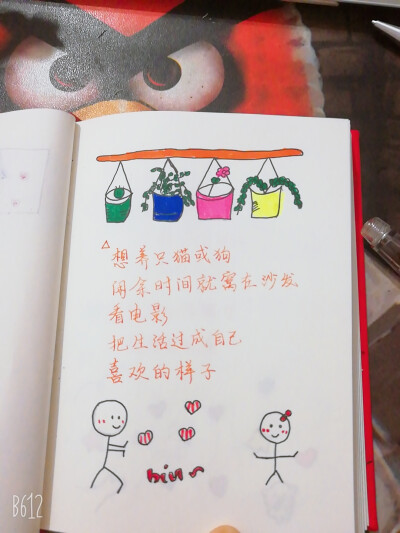 想养只猫或狗
闲余时间就窝在沙发
看电影
把生活过成自己
喜欢的样子
biu~
B612